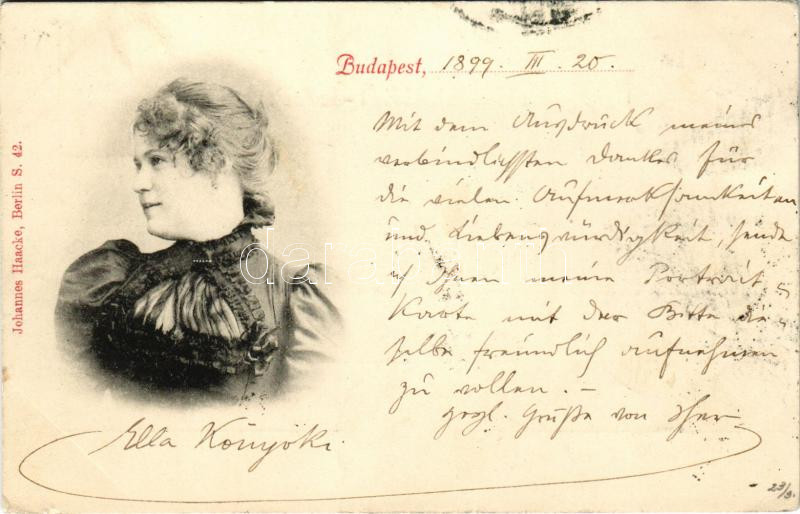 Budapest, 1899. III. 20.
Mit dem Ausdruck meines
verbindlichsten Dankes für
die vielen Aufmerksamkeiten
und Liebenswürdigkeit, sende
ich Ihnen meine Portrait
Karte mit der Bitte die
selbe freundlich aufnehmen
zu wollen. –
Grüße von Ihrer
Ella Könyöki.
Johannes Haacke, Berlin S. 42.
23/3.
darabanth